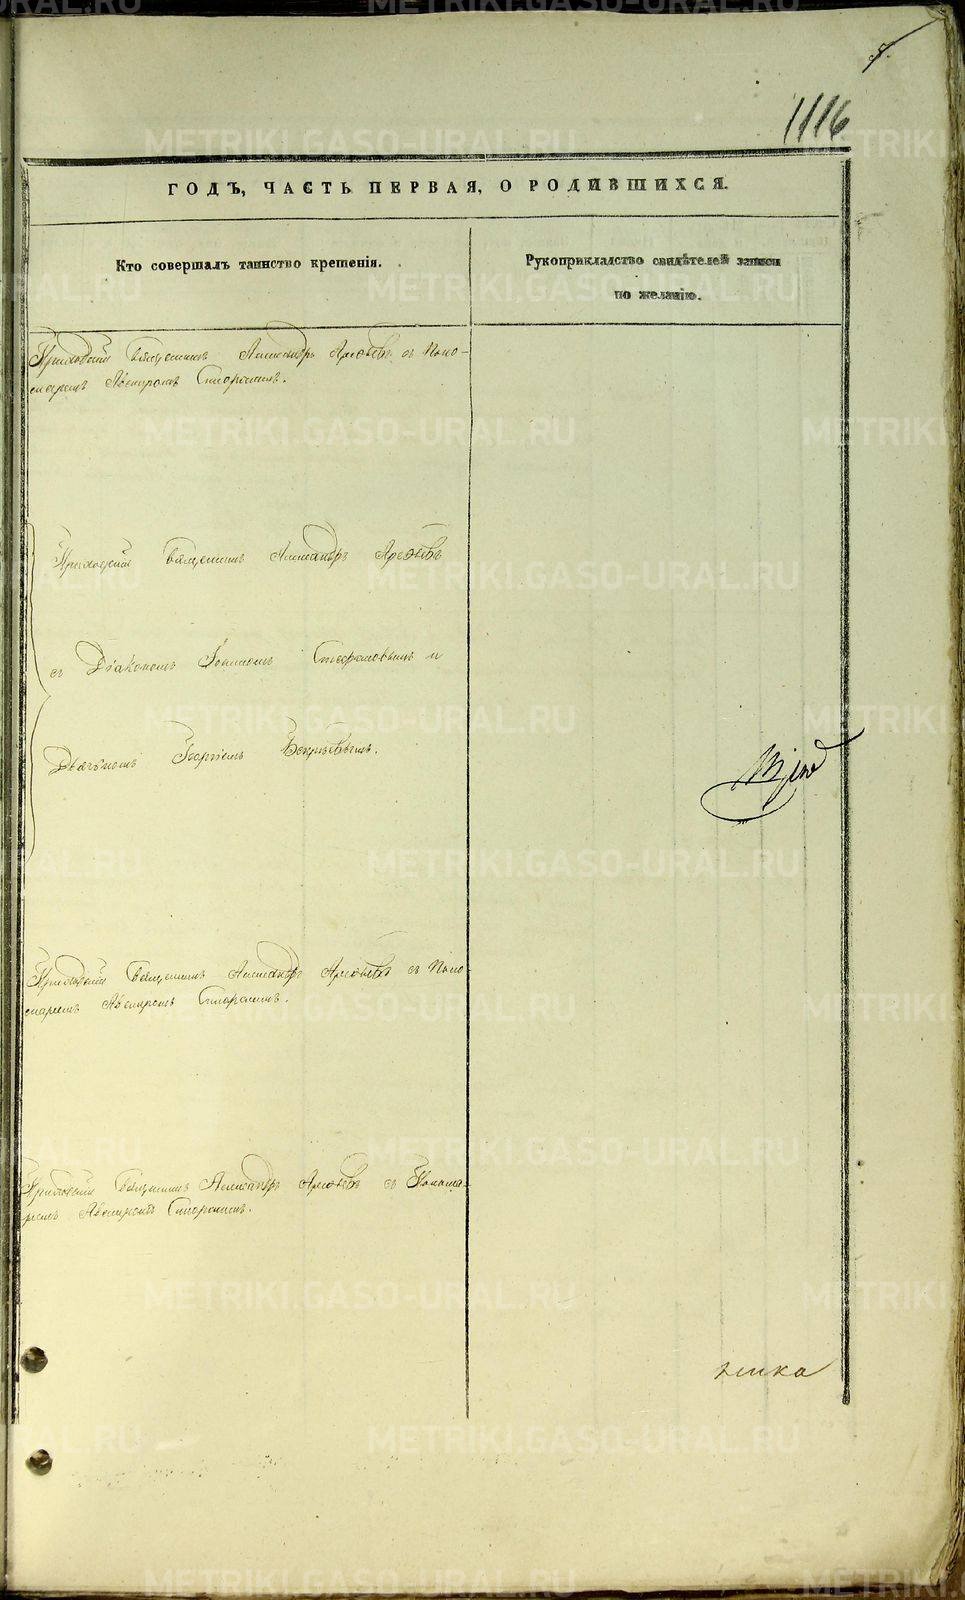 1116
ГОДЪ, ЧАСТЬ ПЕРВАЯ, О РОДИВШИХСЯ.
Кто совершалъ таинство крещенія.
Рукоприкладство свидѣтелей записи
по желанію.
Приходскій Священникъ Александръ Арефьевъ съ Поно-
маремъ Авениромъ
Приходскій Священникъ Александръ Арефьевъ
съ Діакономъ Іоанномъ Стефановымъ и
Дьячкомъ Георгіемъ
Приходскій Священникъ Александръ Арефьевъ съ Поно-
маремъ Авениромъ
Приходскій Священникъ Александръ Арефьевъ съ Понома-
ремъ Авениромъ
METRIKI.GASO-URAL.RU